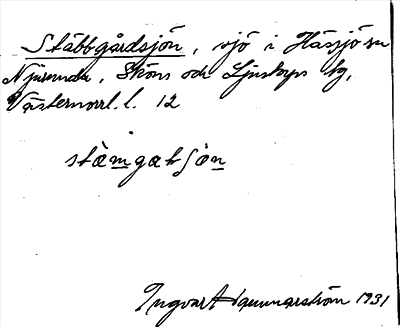 Stäbbgårdsjön, sjö i Hässjö sn
Njurunda, Sköns och Ljustorps tg,
Västernorrl. l. 12
stämgatsjön
Ingvart Hammarström 1931